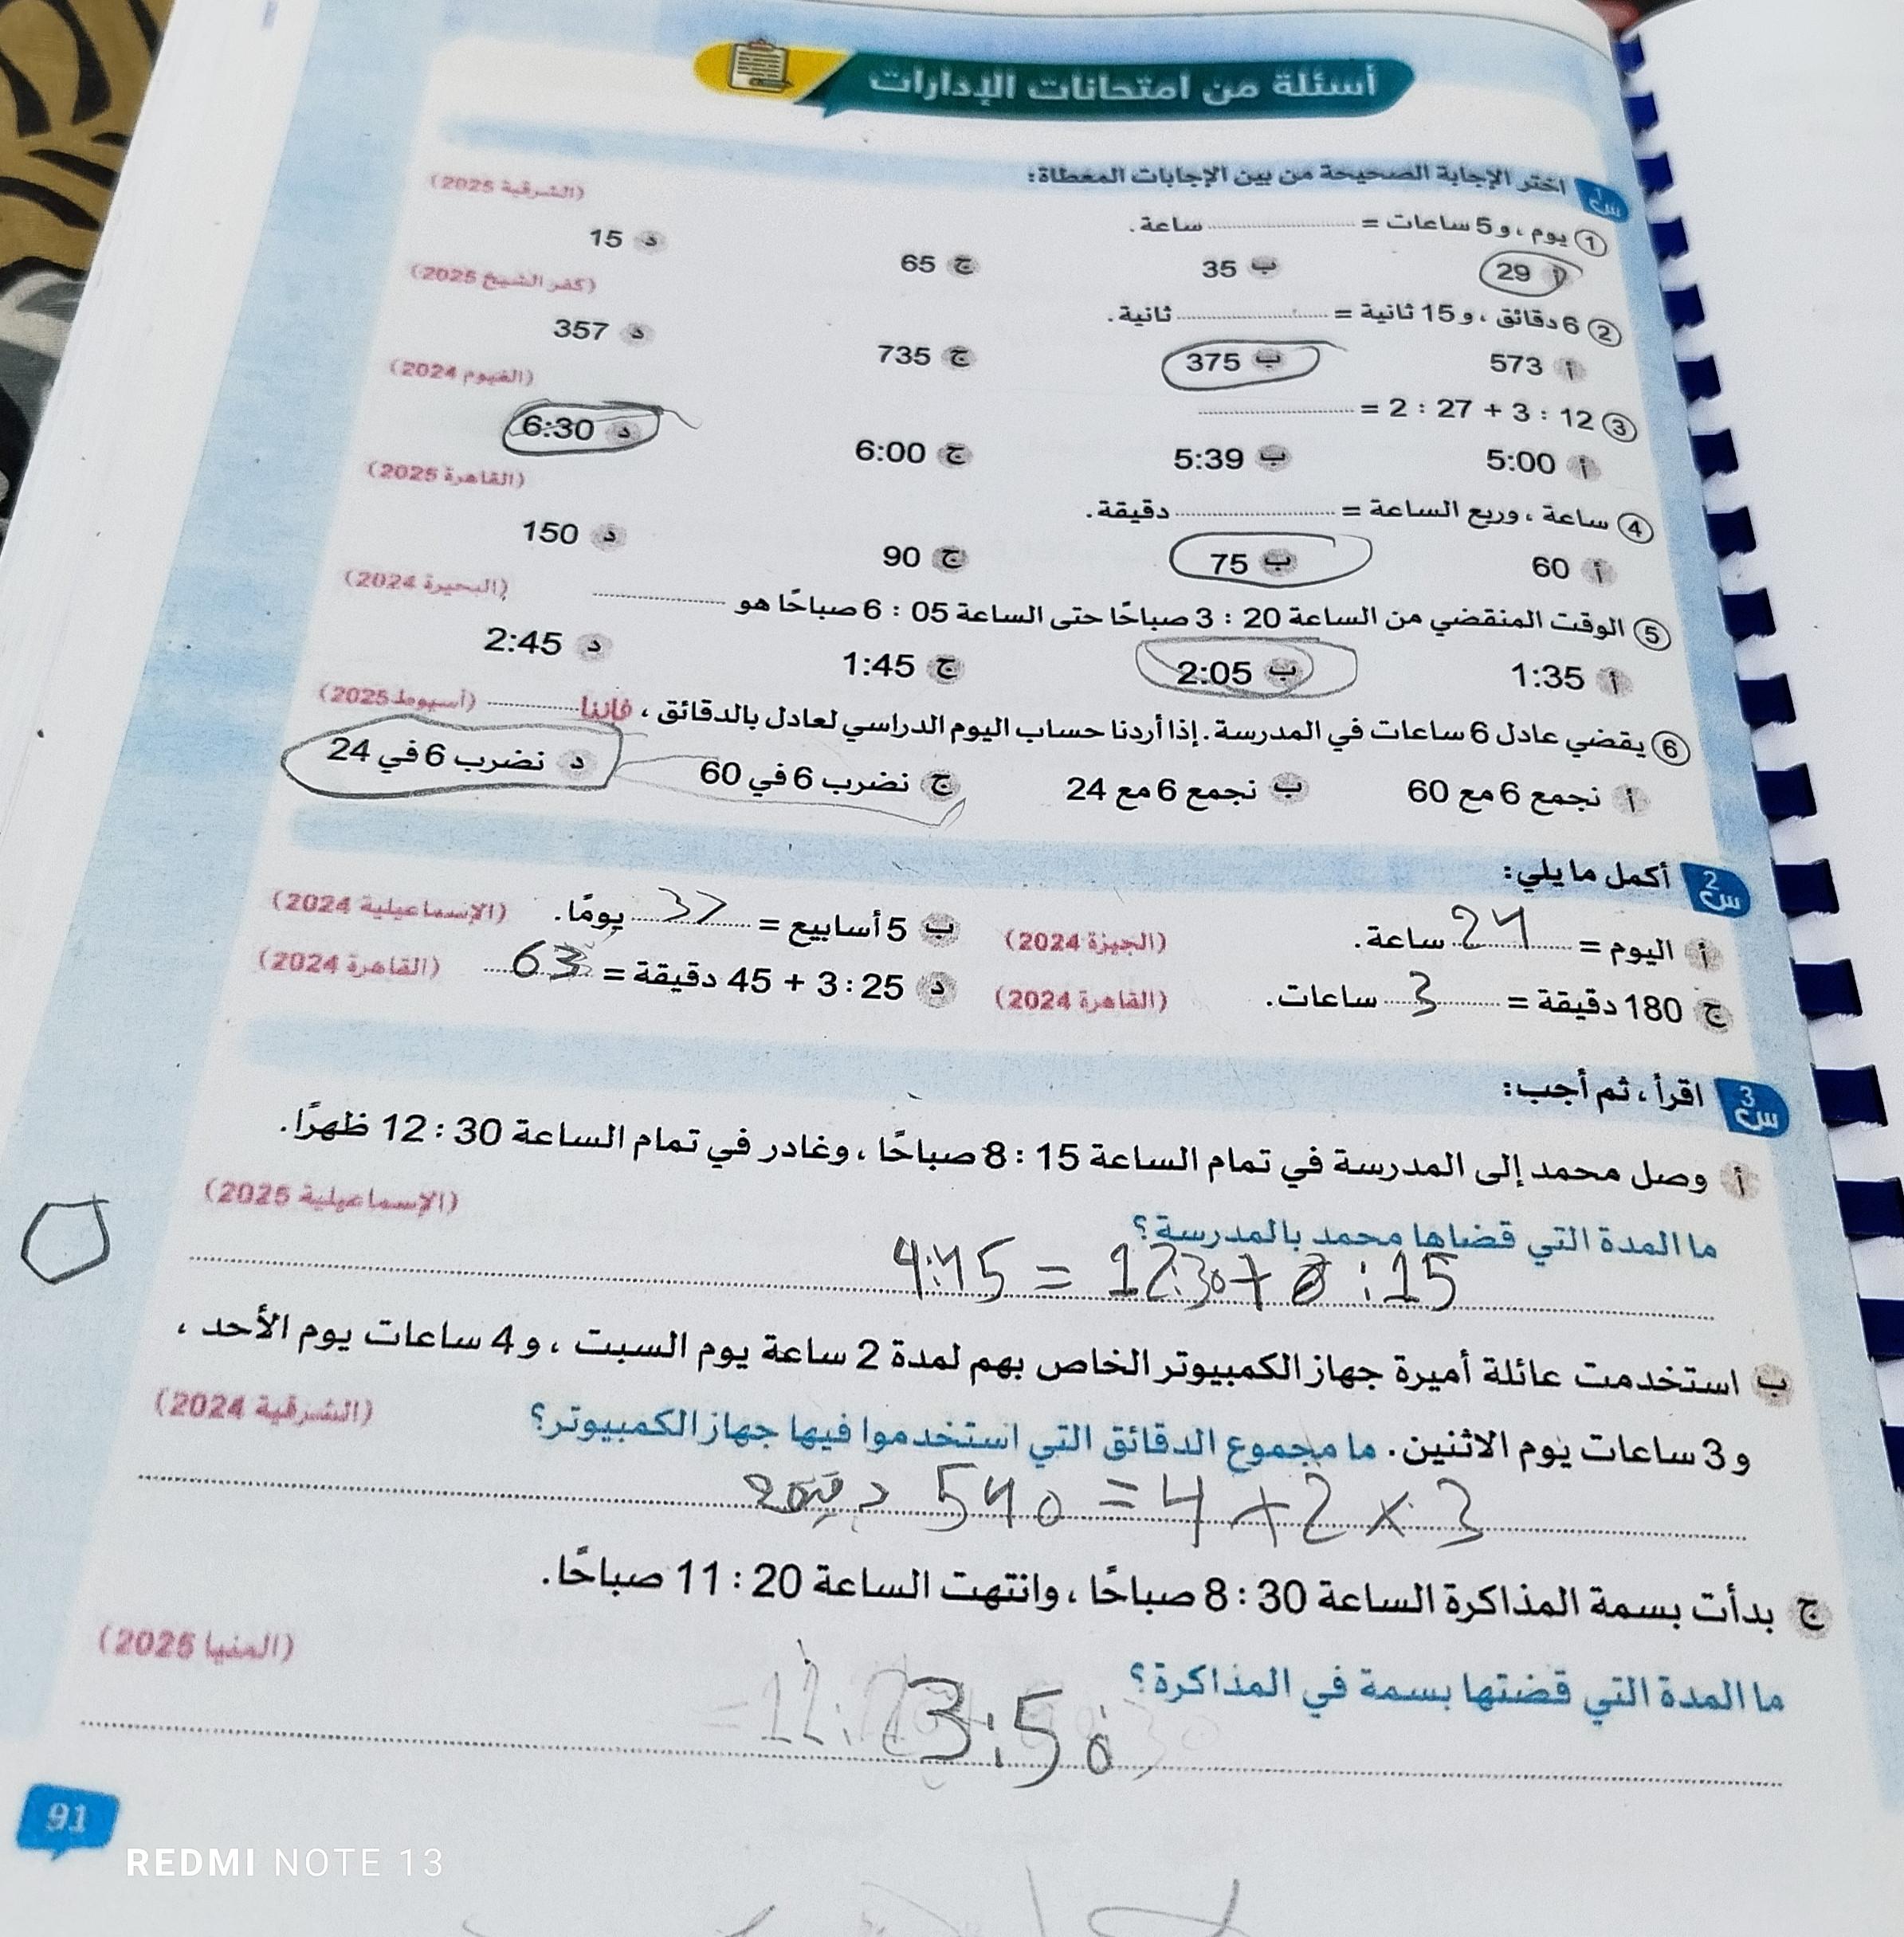 أسئلة من امتحانات الإدارات
س1 اختر الإجابة الصحيحة من بين الإجابات المعطاة:
1 يوم، و 5 ساعات = ............ ساعة. (الشرقية 2025)
أ 29 ب 35 ج 65 د 15
2 6 دقائق، و 15 ثانية = ............ ثانية. (كفر الشيخ 2025)
أ 573 ب 375 ج 735 د 357
3 2 : 27 + 3 : 12 = ............ (الفيوم 2024)
أ 5:00 ب 5:39 ج 6:00 د 6:30
4 ساعة، وربع الساعة = ............ دقيقة. (القاهرة 2025)
أ 60 ب 75 ج 90 د 150
5 الوقت المنقضي من الساعة 20 : 3 صباحًا حتى الساعة 05 : 6 صباحًا هو ............ (البحيرة 2024)
أ 1:35 ب 2:05 ج 1:45 د 2:45
6 يقضي عادل 6 ساعات في المدرسة. إذا أردنا حساب اليوم الدراسي لعادل بالدقائق، فإننا ............ (أسيوط 2025)
أ نجمع 6 مع 60 ب نجمع 6 مع 24 ج نضرب 6 في 60 د نضرب 6 في 24
س2 أكمل ما يلي:
أ اليوم = 24 ساعة. (الجيزة 2024) ب 5 أسابيع = 37 يومًا. (الإسماعيلية 2024)
ج 180 دقيقة = 3 ساعات. (القاهرة 2024) د 3:25 + 45 دقيقة = 63 (القاهرة 2024)
س3 اقرأ، ثم أجب:
أ وصل محمد إلى المدرسة في تمام الساعة 15 : 8 صباحًا، وغادر في تمام الساعة 30 : 12 ظهرًا.
ما المدة التي قضاها محمد بالمدرسة؟ (الإسماعيلية 2025)
4:45 = 12:30 + 8 :15
ب استخدمت عائلة أميرة جهاز الكمبيوتر الخاص بهم لمدة 2 ساعة يوم السبت، و 4 ساعات يوم الأحد،
و 3 ساعات يوم الاثنين. ما مجموع الدقائق التي استخدموا فيها جهاز الكمبيوتر؟ (الشرقية 2024)
540 = 4 + 2 × 3
ج بدأت بسمة المذاكرة الساعة 30 : 8 صباحًا، وانتهت الساعة 20 : 11 صباحًا.
ما المدة التي قضتها بسمة في المذاكرة؟ (المنيا 2025)
3:50
91
REDMI NOTE 13